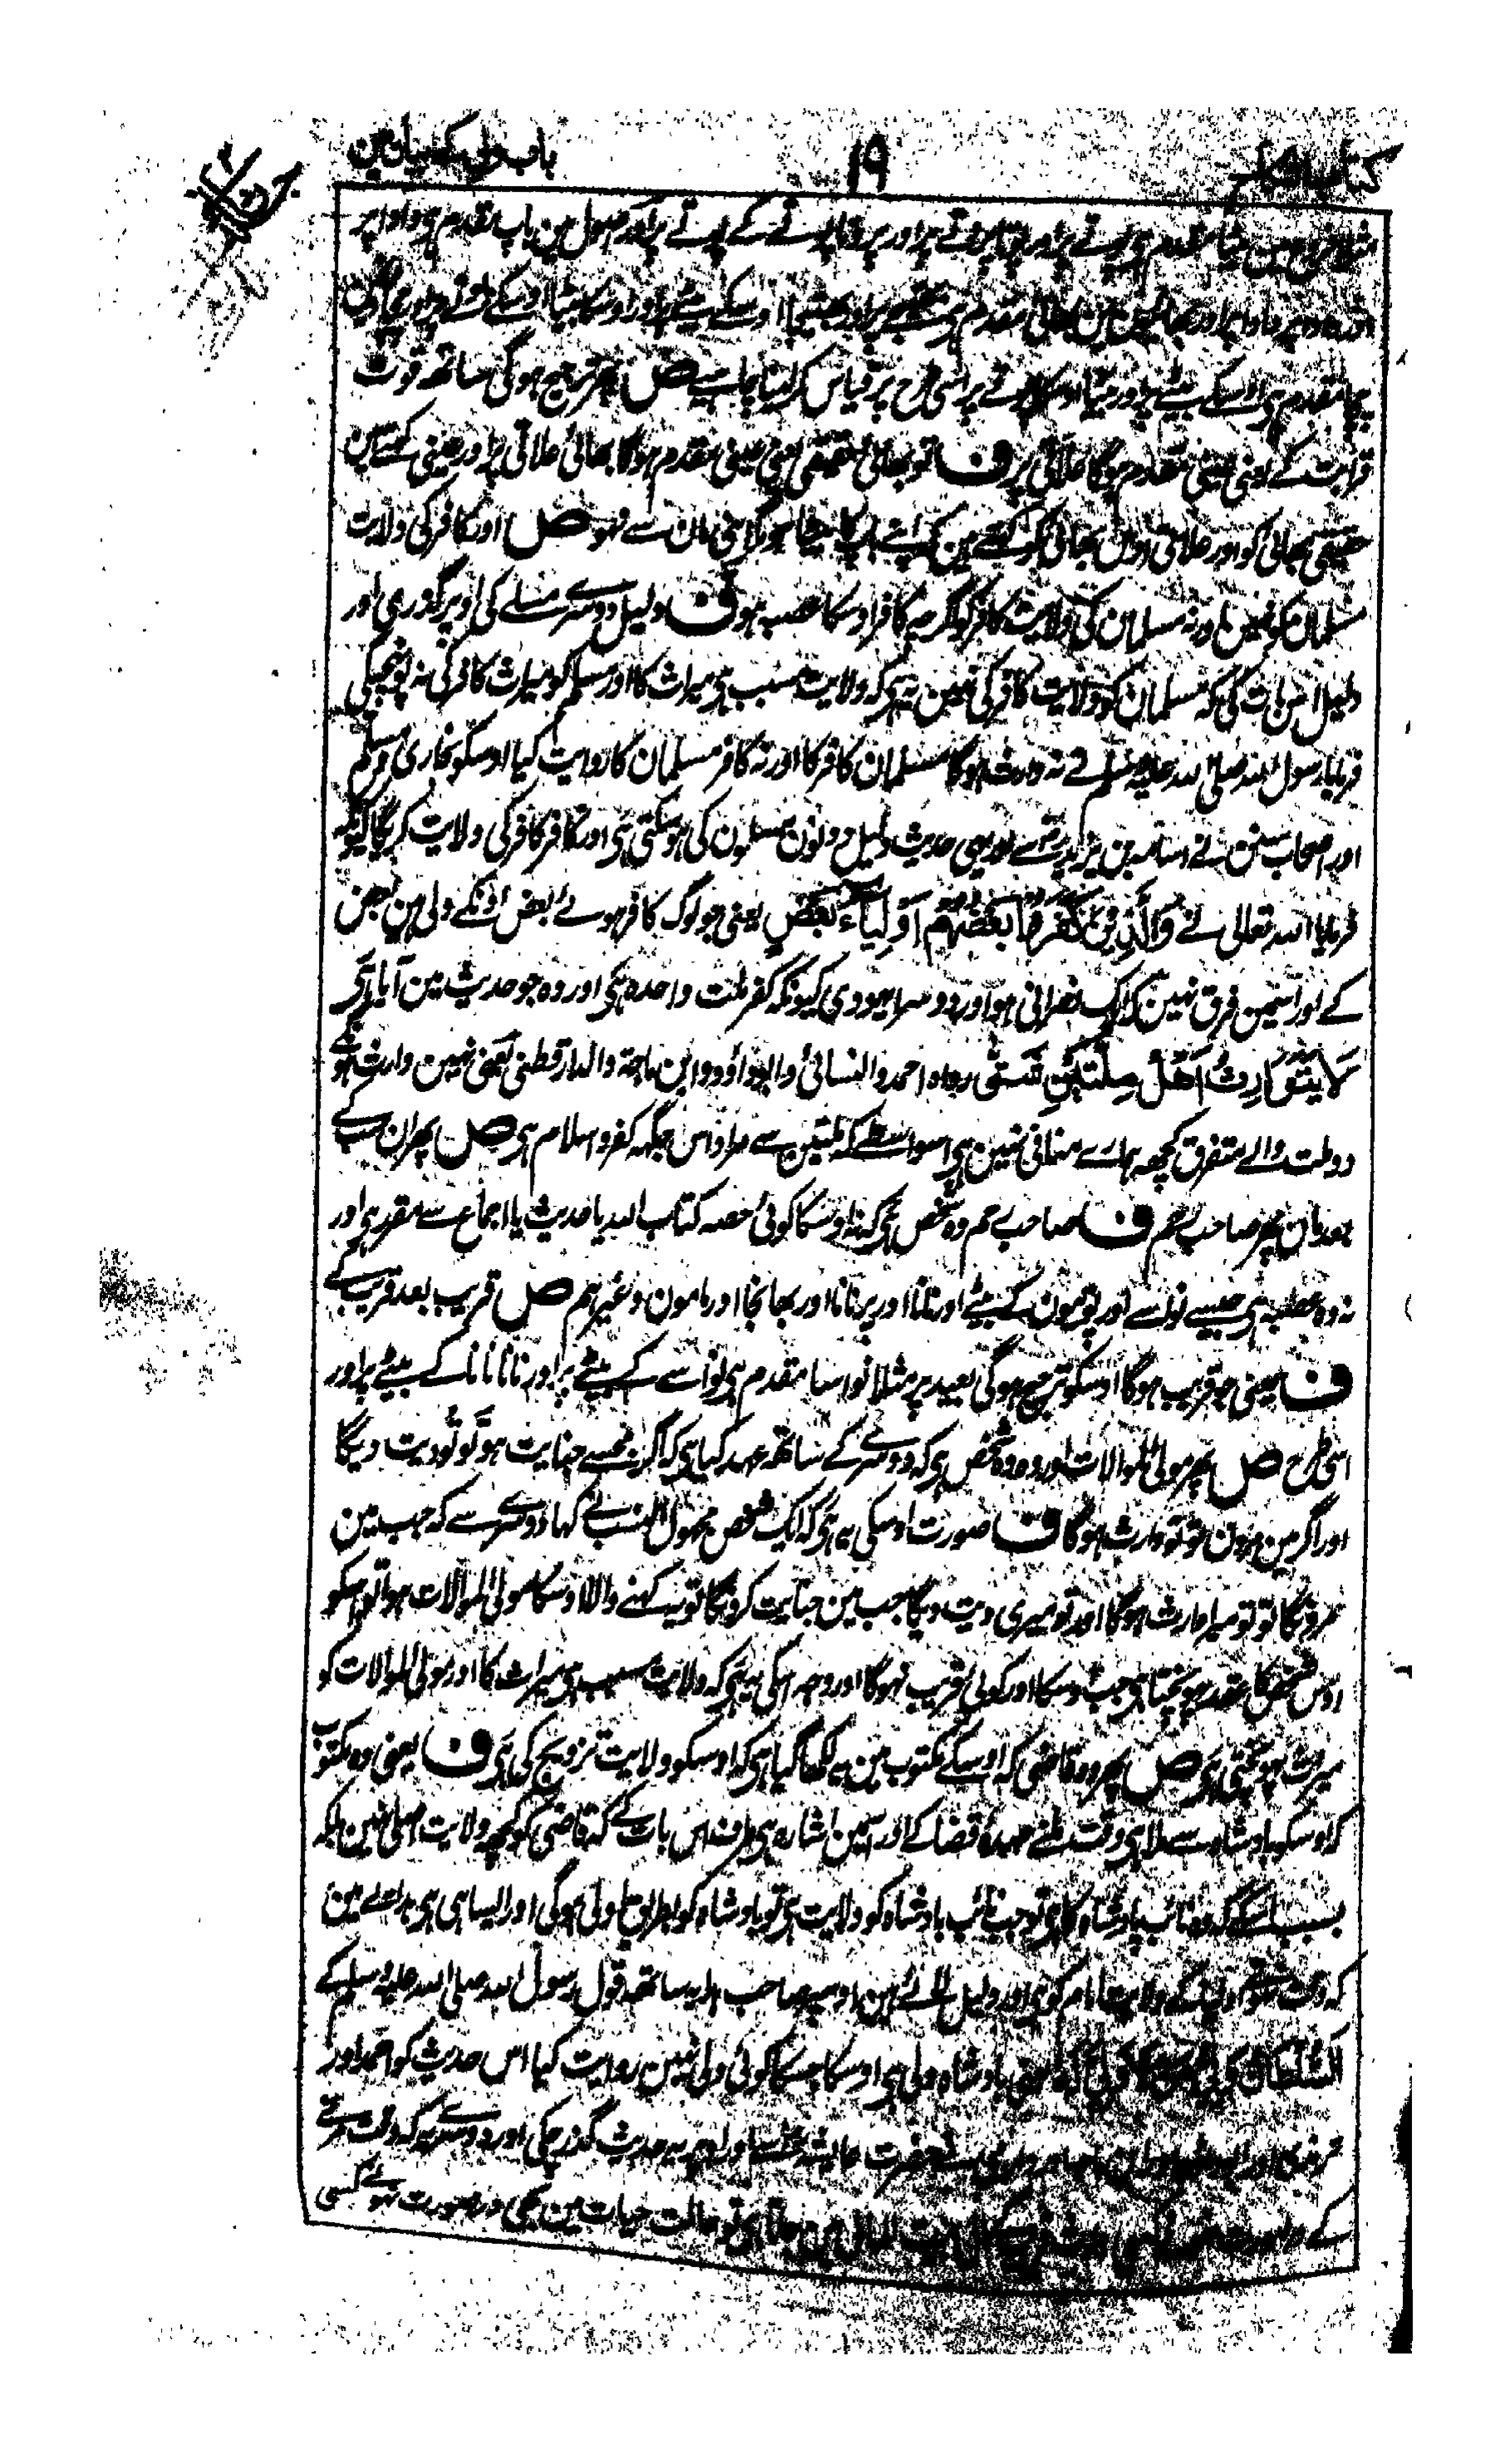 کتاب النکاح ۱۹ باب ولی کے بیان مین
بیٹا مقدم ہی پوتے پر اور پوتا پروتے پر اور پروتا پروتے کے پوتے پر اور اصول مین باپ مقدم ہی دادا پر
مقدم ہی بھتیجے پر اور بھتیجا اوسکے بیٹے پر اور اوسکا بیٹا اوسکے پوتے پر
چچا مقدم ہی اوسکے بیٹے پر اور بیٹا اوسکا پوتے پر اسی طرح پر قیاس کر لینا چاہیے ص پھر ترجیح ہوگی ساتھ قوت
قرابت کے یعنی عینی مقدم ہوگا علاتی پر ف تو بھائی حقیقی یعنی عینی مقدم ہوگا بھائی علاتی پر اور عینی کہتے ہین
حقیقی بھائی کو اور علاتی اوس بھائی کو کہتے ہین کہ اپنے باپ کا بیٹا ہو لاکن مان سے نہو ص اور کافر کی ولایت
مسلمان کو نہین اور نہ مسلمان کی ولایت کافر کو اگرچہ کافر اوسکا عصبہ ہو ف دلیل دوسرے مسئلے کی اوپر گذری اور
دلیل اس بات کی کہ مسلمان کو ولایت کافر کی نہین یہ ہی کہ ولایت سبب ہی میراث کا اور مسلم کو میراث کافر کی نہ پہونچیگی
فرمایا رسول اللہ صلی اللہ علیہ وسلم نے نہ وارث ہوگا مسلمان کافر کا اور نہ کافر مسلمان کا روایت کیا اوسکو بخاری و مسلم
اور اصحاب سنن نے اسامہ بن زید سے اور یہی حدیث دلیل دونون مسئلون کی ہوسکتی ہی اور کافر کافر کی ولایت کریگا کیونکہ
فرمایا اللہ تعالی نے وَالَّذِیْنَ کَفَرُوْا بَعْضُهُمْ اَوْلِیَاءُ بَعْضٍ یعنی جو لوگ کافر ہوئے بعض اونکے ولی ہین بعض
کے اور اسمین فرق نہین کہ ایک نصرانی ہو اور دوسرا یہودی کیونکہ کفر ملت واحدہ ہی اور وہ جو حدیث مین آیا ہی
لَا یَتَوَارَثُ اَهْلُ مِلَّتَیْنِ شَتّٰی رواہ احمد والنسائی وابوداؤد وابن ماجة والدارقطنی یعنی نہین وارث ہونگے
دو ملت والے متفرق کچھ ہمارے منافی نہین ہی اسواسطے کہ ملتین سے مراد اس جگہہ کفر و اسلام ہی ص پھر ان سب کے
بعد مان پھر صاحب رحم ف صاحب رحم وہ شخص ہی کہ نہ اوسکا کوئی حصہ کتاب اللہ یا حدیث یا اجماع سے مقرر ہی اور
نہ وہ عصبہ ہی جیسے نواسے اور پوتیون کے بیٹے اور نانا اور پرنانا اور بھانجا اور مامون وغیرہم ص قریب بعد قریب کے
ف یعنی جو قریب ہوگا اوسکو ترجیح ہوگی بعید پر مثلا نواسا مقدم ہی نواسے کے بیٹے پر اور نانا نانا کے بیٹے پر اور
اسی طرح ص پھر مولی الموالات اور وہ وہ شخص ہی کہ دوسرے کے ساتھ عہد کیا ہی کہ اگر مجھسے جنایت ہو تو تو دیت دیگا
اور اگر مین مرون تو تو وارث ہوگا ف صورت اوسکی یہ ہی کہ ایک شخص مجہول النسب نے کہا دوسرے سے کہ جب مین
مرونگا تو تو میرا وارث ہوگا اور تو میری دیت دیگا جب مین جنایت کرونگا تو یہ کہنے والا اوسکا مولی الموالات ہوا تو اسکو
اوس شخص کا عقد پہونچتا ہی جب اوسکا اور کوئی قریب نہوگا اور وجہ اسکی یہ ہی کہ ولایت سبب ہی میراث کا اور مولی الموالات کو
میراث پہونچتی ہی ص پھر وہ قاضی کہ اوسکے مکتوب مین یہ لکھا گیا ہی کہ اوسکو ولایت تزویج کی ہی ف یعنی وہ مکتوب
کہ اوسکو بادشاہ سے ملا ہی وقت ملنے عہدۂ قضا کے اور اسمین اشارہ ہی طرف اس بات کے کہ قاضی کو کچھ ولایت اصلی نہین بلکہ
بسبب اسکے کہ وہ نائب بادشاہ کا ہی تو جب نائب بادشاہ کو ولایت ہی تو بادشاہ کو بطریق اولی ہوگی اور ایسا ہی ہی ہدایے مین
کہ ولایت امام کو ہی اور دلیل لائے ہین اوسپر صاحب ہدایہ ساتھ قول رسول اللہ صلی اللہ علیہ وسلم کے
السلطان ولی من لا ولی له یعنی بادشاہ ولی ہی اوسکا جسکا کوئی ولی نہین روایت کیا اس حدیث کو احمد اور
ترمذی اور نے حضرت عایشہ سے اور اوپر یہ حدیث گذر چکی اور دوسرے یہ کہ وقت مرنے
کے بیت المال مین جاتا ہی تو حالت حیات مین بھی در صورت نہونے کسی